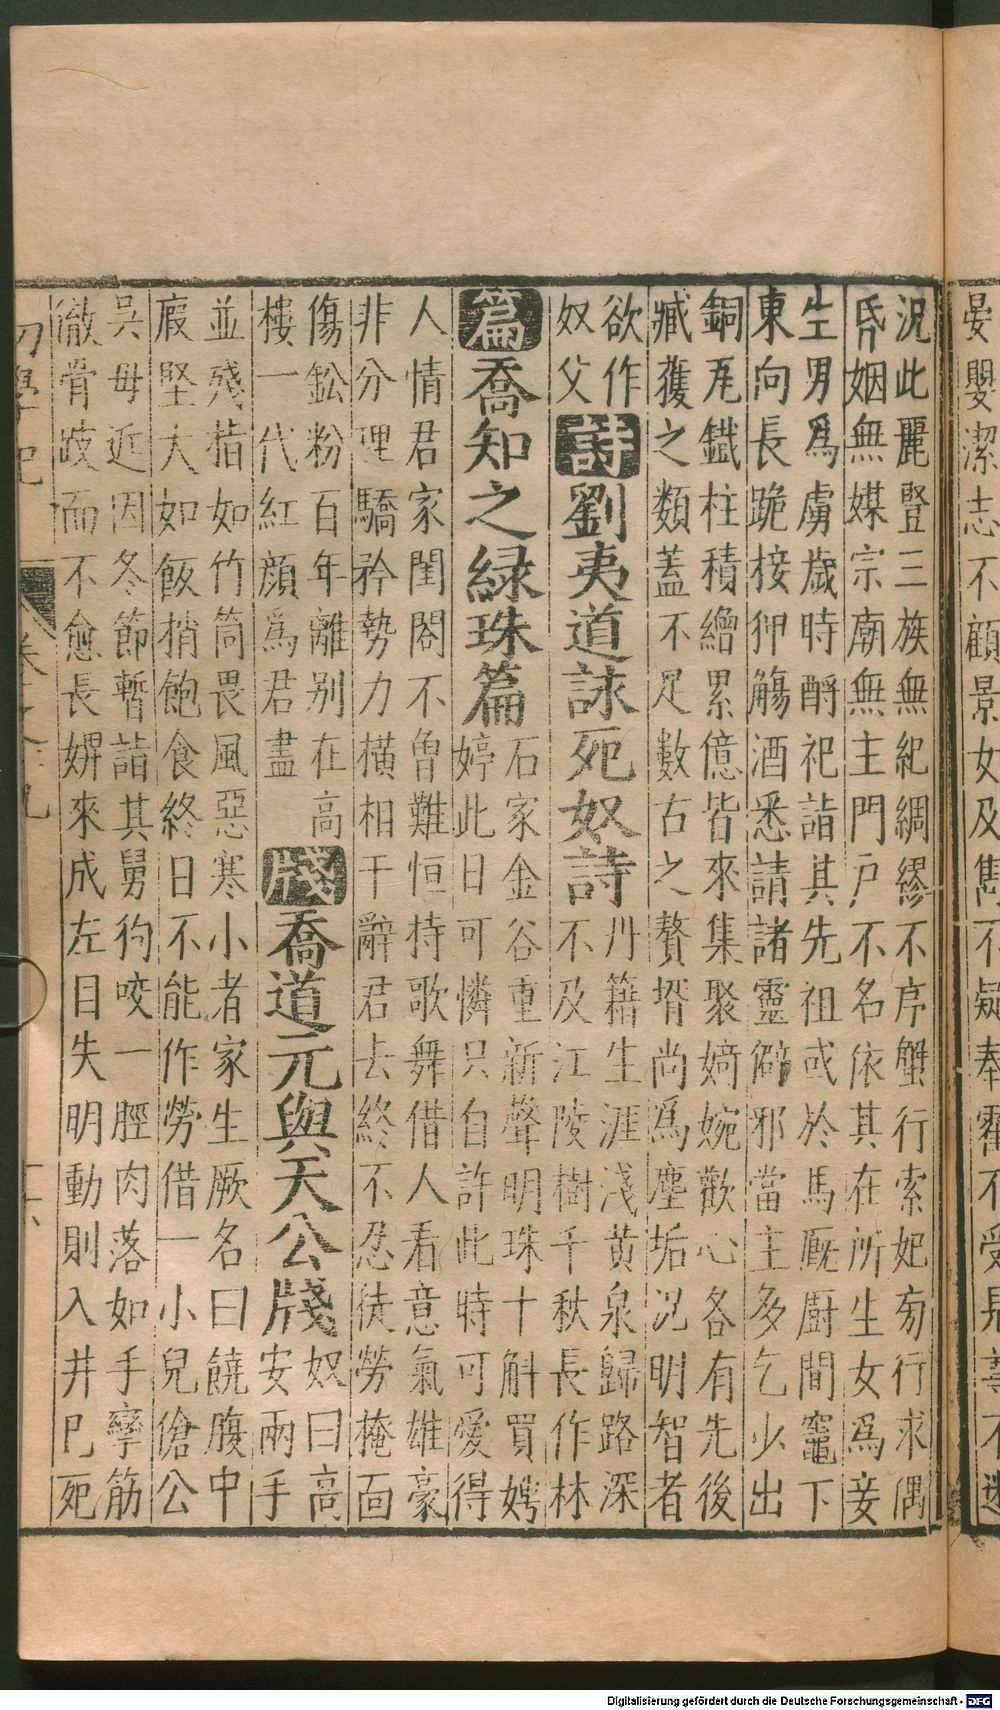 晏嬰潔志不顧景女及雋不疑奉霍不受見
況此麗豎三族無紀綢繆不序蟹行索妃旁行求偶
昏姻無媒宗廟無主門戶不名依其在所生女爲妾
生男爲虜歲時酹祀詣其先祖或於馬厩廚間竈下
東向長跪接狎觴酒悉請諸靈僻邪當主多乞少出
銅瓦鐵柱積繒累億皆來集聚婍婉歡心各有先後
臧獲之類蓋不足數右之贅壻尚爲塵垢況明智者
欲作
奴父
詩劉夷道詠死奴詩
丹籍生涯淺黃泉歸路深
不及江陵樹千秋長作林
篇喬知之緑珠篇
石家金谷重新聲明珠十斛買娉
婷此日可憐只自許此時可愛得
人情君家閨閤不曾難恒持歌舞借人看意氣雄豪
非分理驕矜勢力橫相干辭君去終不忍徒勞掩面
傷鈆粉百年離别在高
樓一代紅顔爲君盡
牋喬道元與天公牋
奴曰高
安兩手
並殘指如竹筒畏風惡寒小者家生厥名曰饒腹中
瘕堅大如飯梢飽食終日不能作勞借一小兒傖公
吳毋近因冬節暫詣其舅狗咬一脛肉落如手攣筋
徹骨跛而不愈長姸來成左目失明動則入井巳死
初學記
卷十九
Digitalisierung gefördert durch die Deutsche Forschungsgemeinschaft - DFG